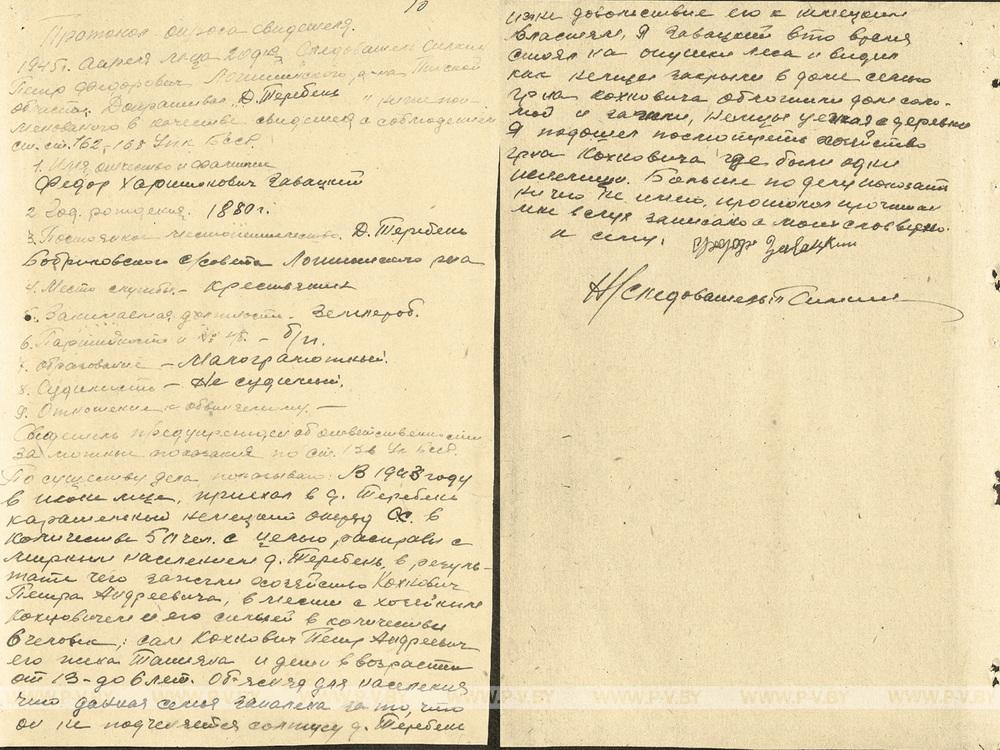 10
Протокол опроса свидетеля.
1945 г. апреля м-ца 20 дня. Следователь
Петр Федорович Логишинского р-на Пинской
области. Допрашивал Д. Теребень нижепои-
менованного в качестве свидетеля с соблюдением
ст. ст. 162, 168 УПК БССР.
1. Имя отчество и фамилия
Федор Харитонович Завацкий
2 Год. рождения. 1880 г.
3. Постоянное местожительство. Д. Теребень
Бобриковского с/совета Логишинского р-на
4. Место службы – крестьянин
5. Занимаемая должность. Землероб.
6. Партийность и – б/п.
7. Образование – Малограмотный.
8. Судимость – Не судимый.
9. Отношение к обвиняемому. –
Свидетель предупрежден об ответственности
за ложные показания по ст. 136 УК БССР.
По существу дела показываю: В 1943 году
в июне м-це, приехал в д. Теребень
карательный немецкий отряд СС. в
количестве 50 чел. с целью расправы с
мирным населением д. Теребень, в резуль-
тате чего зажгли хозяйство Кохнович
Петра Андреевича, вместе с хозяином
Кохновичем и его семьей в количестве
6 человек; сам Кохнович Петр Андреевич
его жена Татьяна и дети в возрасте
от 13-до 6 лет. Объясняя для населения
что данная семья запалена за то, что
он не подченяется солтусу д. Теребень
довольствие его к немецким
властям, Я Завацкий в то время
стоял на опушки леса и видил
как немцы закрыли в доме семью
гр-на Кохновича обложили дом соло-
мой и зажгли, Немцы уехали с деревни
Я подошел посмотреть хозяйство
гр-на Кохновича где были одни
пепелищи. Больше по делу показать
ничего не имею, протокол прочитан
мне в слух записано с моих слов верно.
к сему. Федор Завацкий
Н/Следователь
WWW.P-V.BY WWW.P-V.BY WWW.P-V.BY WWW.P-V.BY WWW.P-V.BY